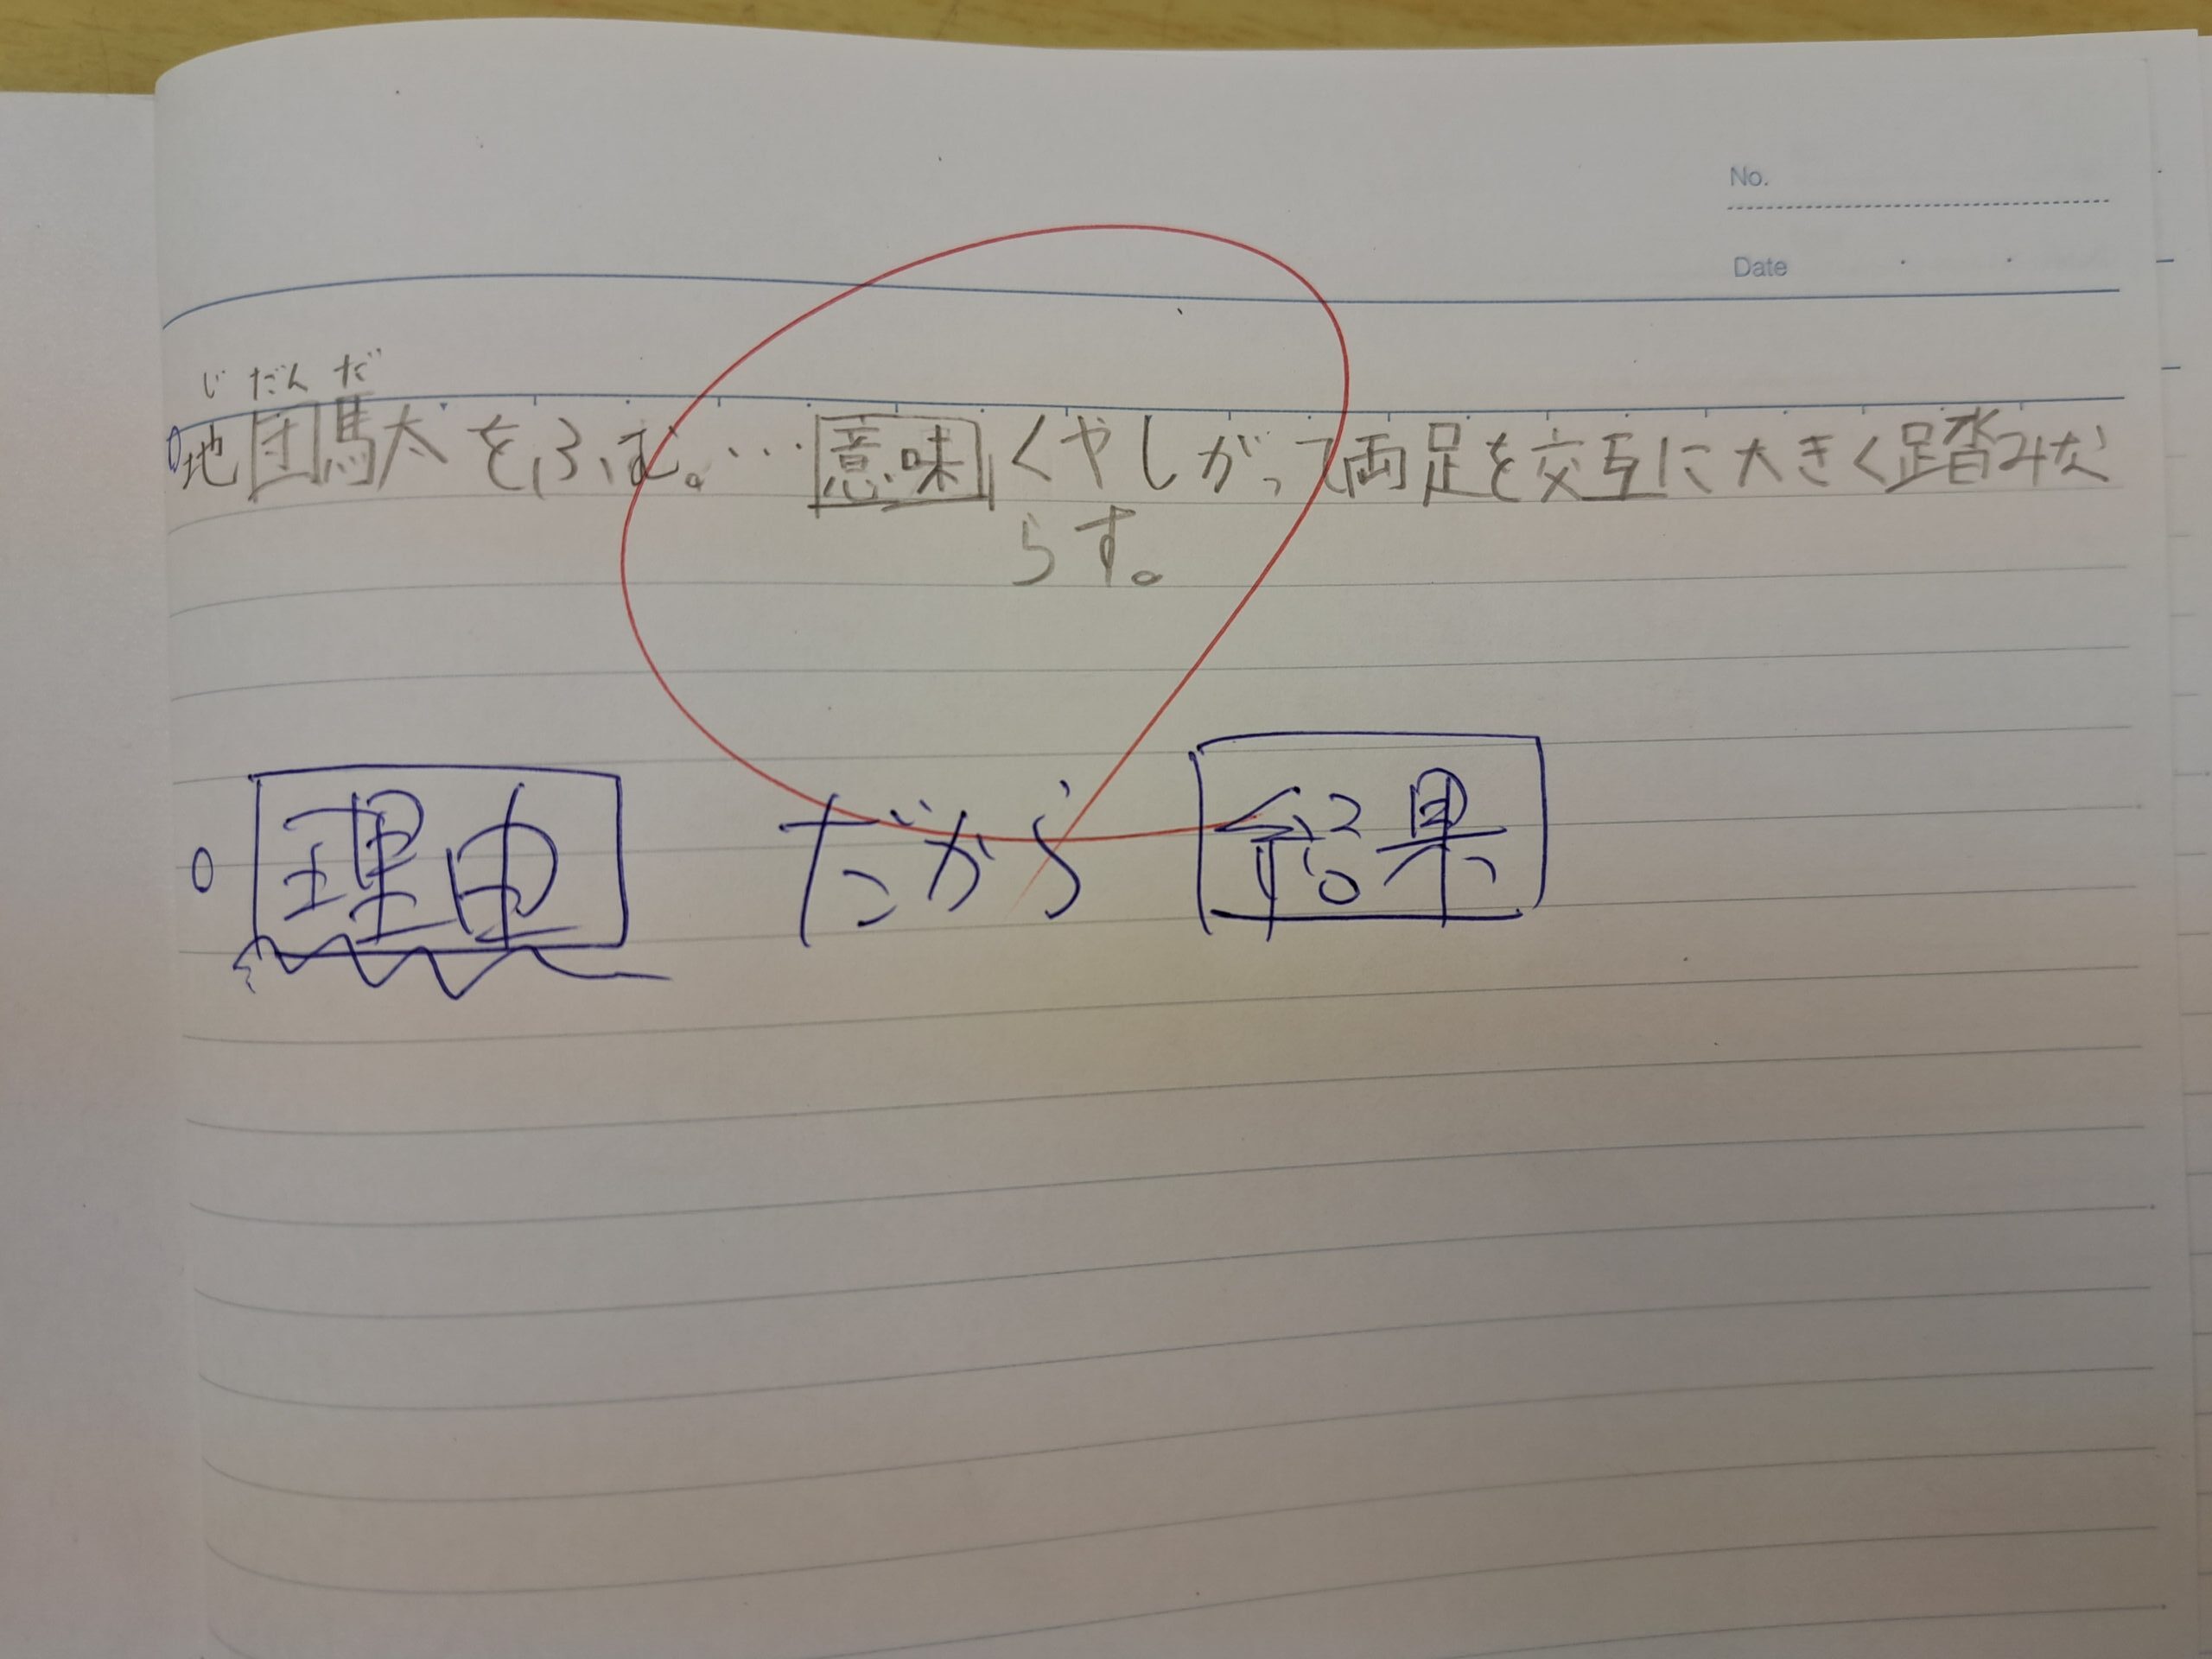 No.
Date
じだんだ
○地団馬太をふむ。…意味 くやしがって両足を交互に大きく踏みな
らす。
○ 理由 だから 結果